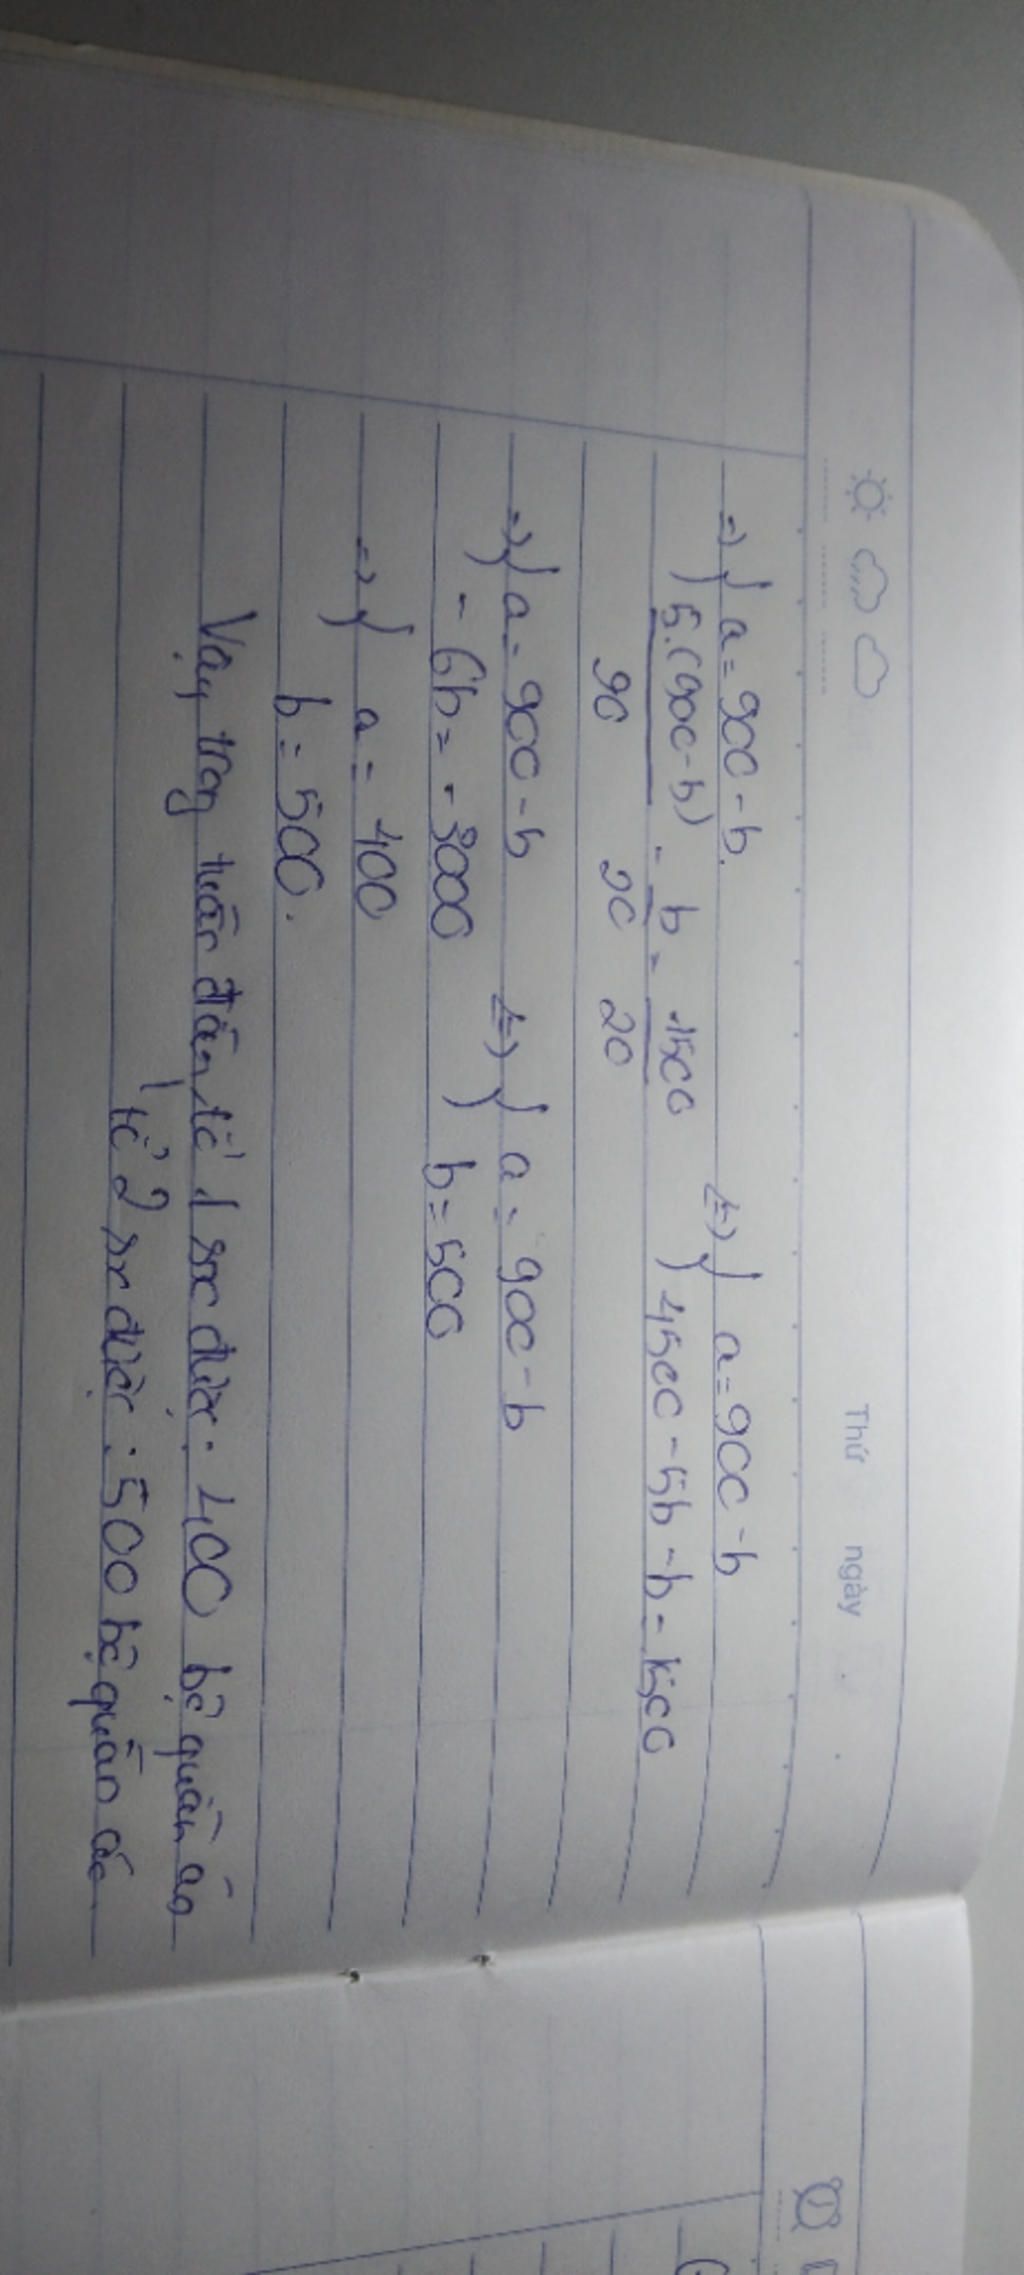 Thứ ngày
=> { a = 900 - b. <=> { a = 900 - b
5.(900-b) - b = 1500 4500 - 5b - b = 1500
90 20 20
=> { a = 900 - b <=> { a = 900 - b
- 6b = - 3000 b = 500
=> { a = 400
b = 500.
Vậy trong tuần đầu, tổ 1 sx được: 400 bộ quần áo
tổ 2 sx được: 500 bộ quần áo